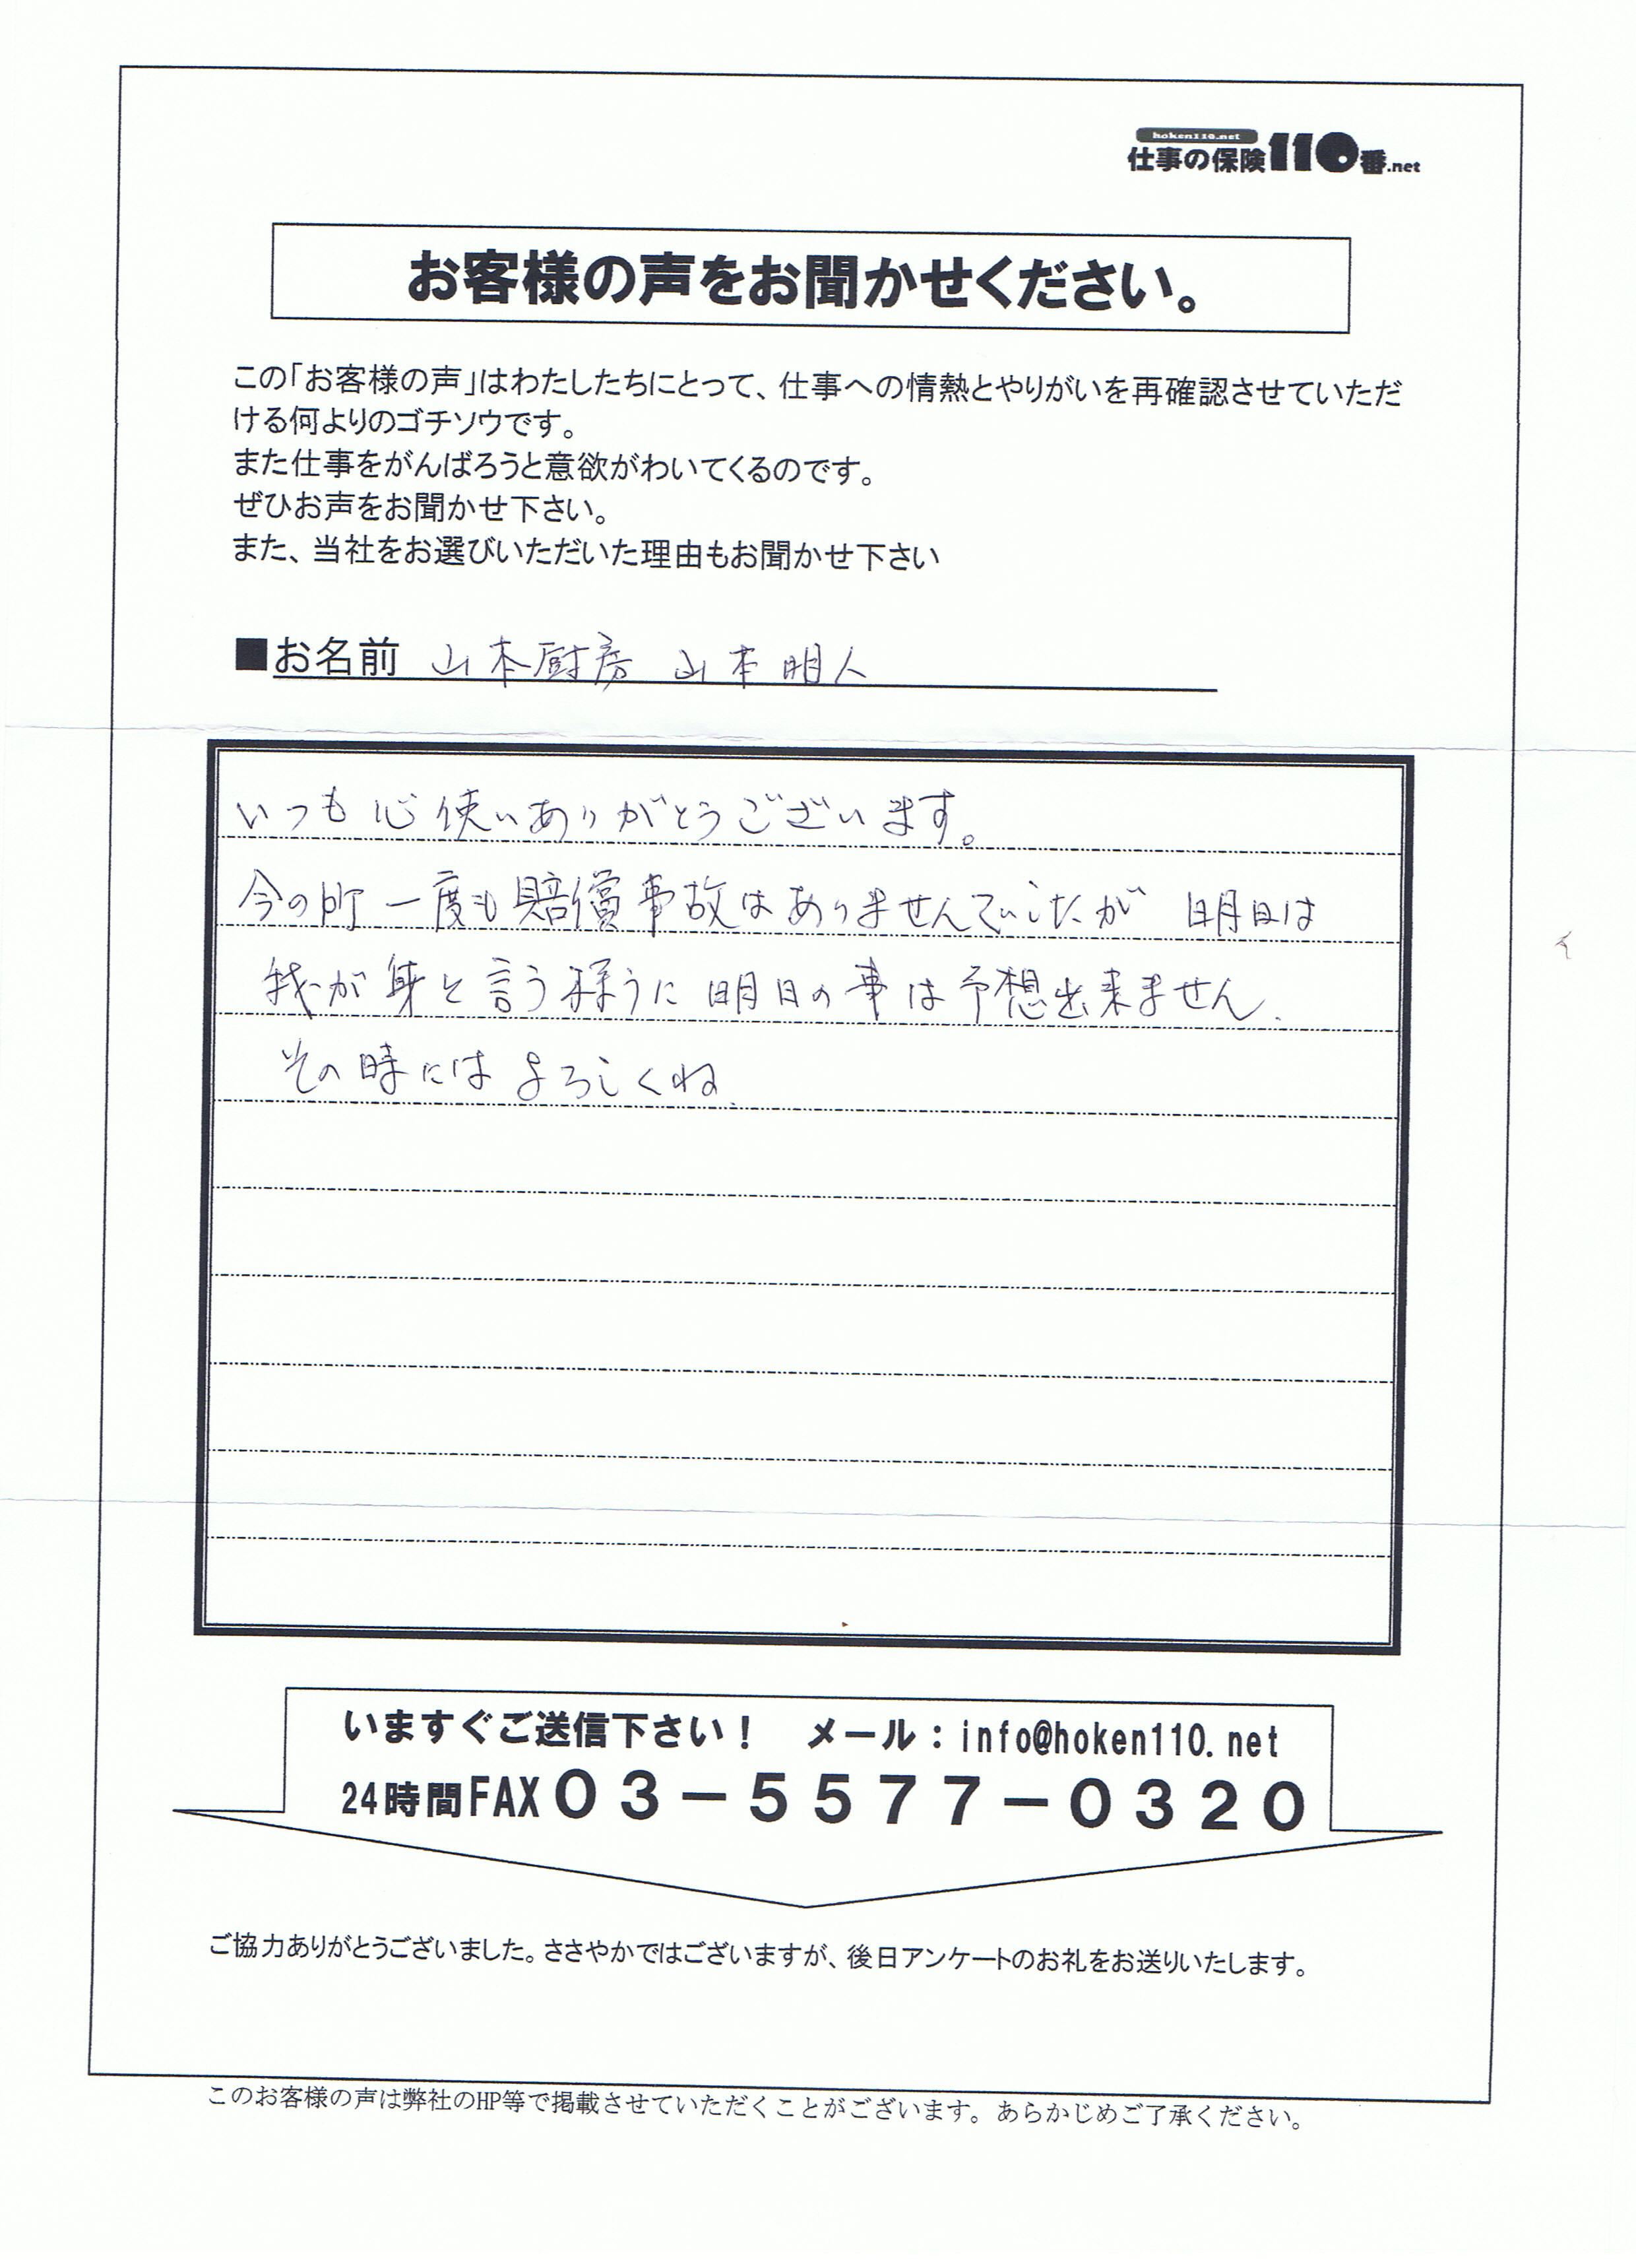 hoken110.net
仕事の保険110番.net
お客様の声をお聞かせください。
この「お客様の声」はわたしたちにとって、仕事への情熱とやりがいを再確認させていただ
ける何よりのゴチソウです。
また仕事をがんばろうと意欲がわいてくるのです。
ぜひお声をお聞かせ下さい。
また、当社をお選びいただいた理由もお聞かせ下さい
■お名前 山本厨房 山本明人
いつも心使いありがとうございます。
今の所一度も賠償事故はありませんでいしたが 明日は
我が身と言う様うに明日の事は予想出来ません.
その時にはよろしくね.
いますぐご送信下さい! メール:info@hoken110.net
24時間FAX03-5577-0320
ご協力ありがとうございました。ささやかではございますが、後日アンケートのお礼をお送りいたします。
このお客様の声は弊社のHP等で掲載させていただくことがございます。あらかじめご了承ください。